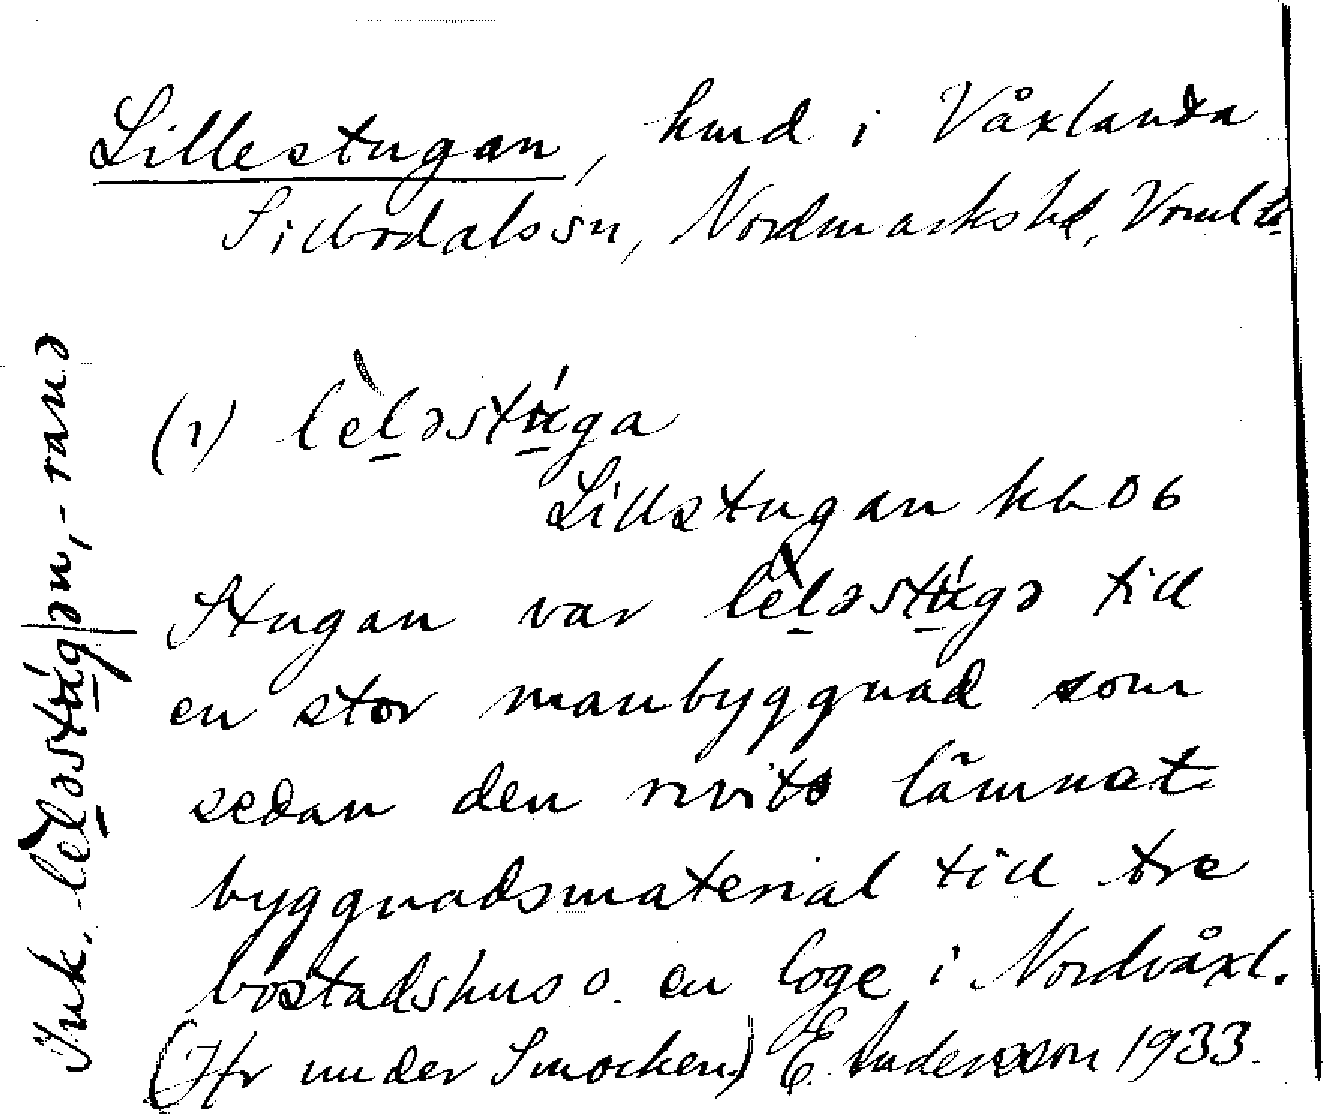 Lillestugan, hmd i Våxlanda
Silbodals sn, Nordmarks hd, Vrml l.
(1) lèḻəstú̱ga
Lillstugan kb 06
Stugan var lèḻəstú̱gə till
en stor manbyggnad som
sedan den rivits lämnat
byggnadsmaterial till tre
bostadshus o. en loge i Nordvåxl.
(Jfr under Smocken) E. Andersson 1933.
Ink. lèḻəstú̱gən, -ranə